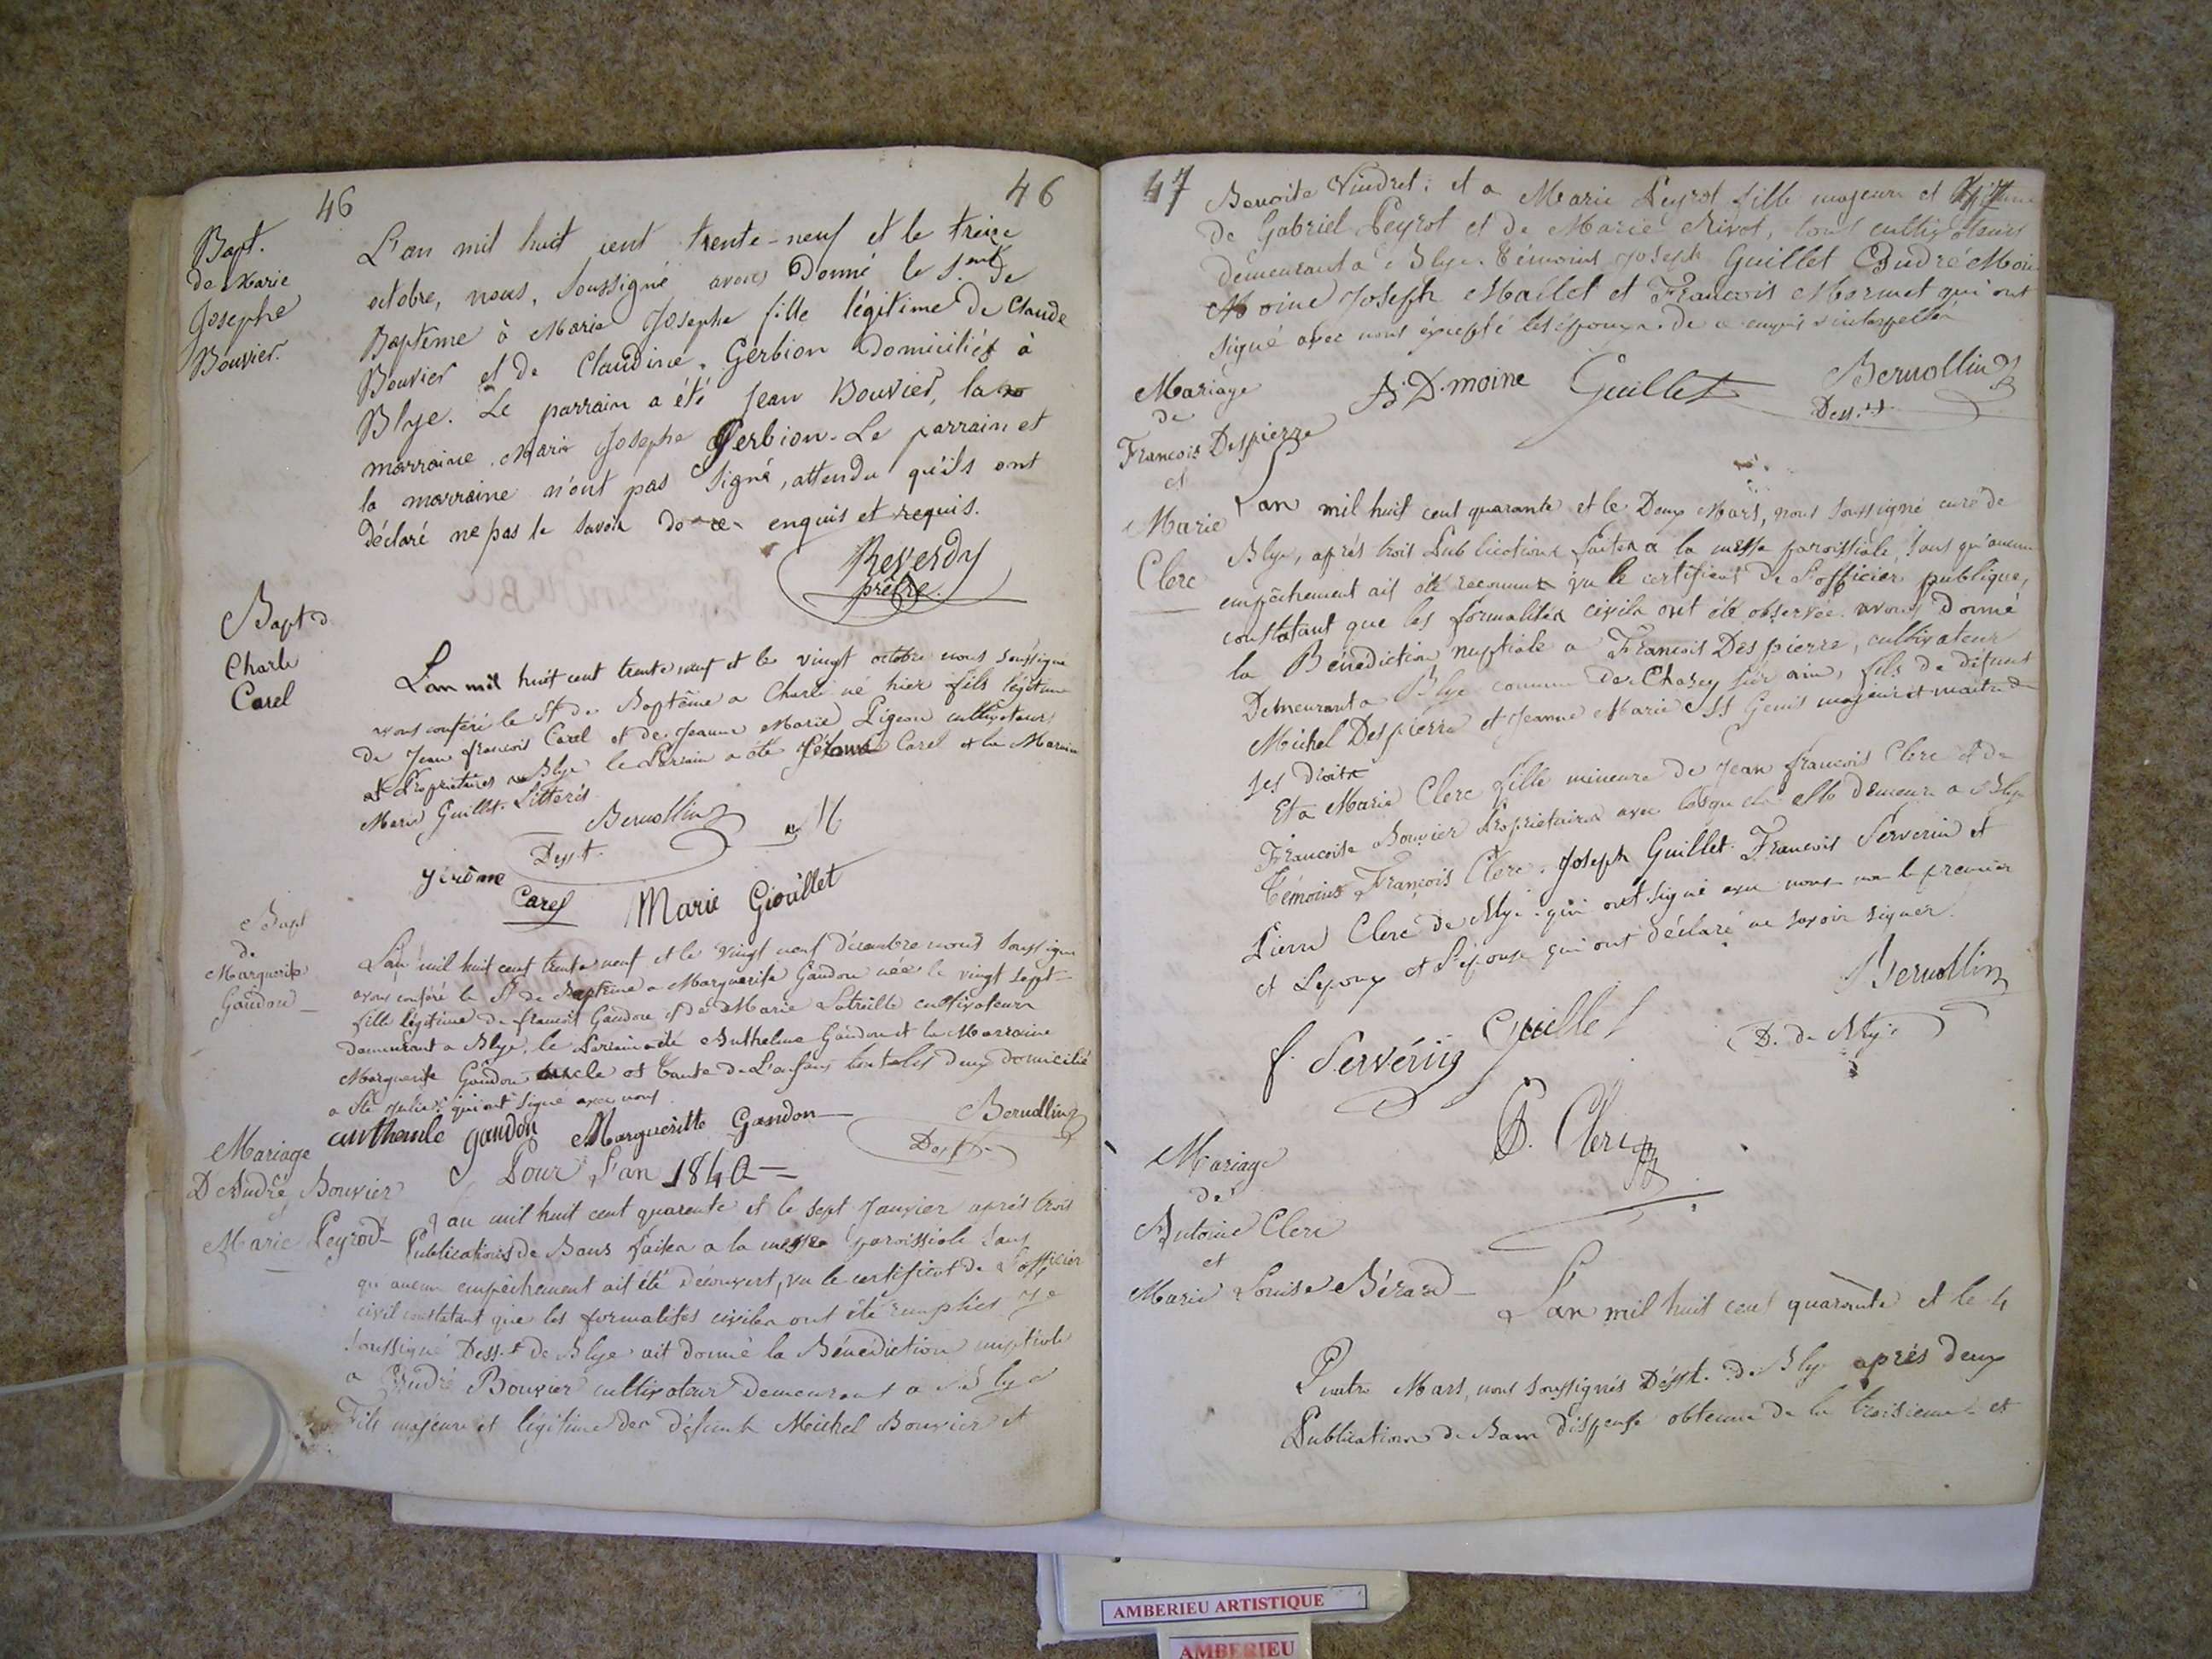 46
46
Bapt.
de Marie
Josephe
Bouvier.
L'an mil huit cent trente-neuf et le treize
octobre, nous, soussigné avons donné le S.ent de
Baptême à Marie Josephe fille légitime de Claude
Bouvier et de Claudine Gerbion domiciliés à
Blye. Le parrain a été Jean Bouvier, la
marraine Marie Josephe Gerbion. Le parrain et
la marraine n'ont pas signé, attendu qu'ils ont
déclaré ne pas le savoir de ce enquis et requis.
Reverdy
prêtre.
Bapt d
Charle
Carel
L'an mil huit cent trente neuf et le vingt octobre nous soussigné
avons conféré le St de Baptême a Charle né hier fils légitime
de Jean francois Carel et de Jeanne Marie Pigeon cultivateurs
et Propriétaires a Blye le Parrain a été Jérôme Carel et la Marraine
Marie Guillet. Litteris
Bernollin
Desst.
Jérôme
Carel
Marie Giouillet
Bapt
de
Marguerite
Gandon
L'an mil huit cent trente neuf et le vingt neuf décembre nous soussigné
avons conféré le St de Baptême a Marguerite Gandon née le vingt sept
fille légitime de francois Gandon et de Marie Latreille cultivateurs
demeurant a Blye, le Parrain a été Anthelme Gandon et la Marraine
Marguerite Gandon oncle et tante de L'enfant tout les deux domicilié
a Ste Julie qui ont signé avec nous
anthemle gandon Margueritte Gandon
Bernollin
Desst.
Pour L'an 1840
Mariage
D'André Bouvier
et
Marie Peyrod
L'an mil huit cent quarente et le sept Janvier après trois
Publications de Bans faites a la messe paroissiale sans
qu'aucun empêchement ait été découvert, vu le certificat de L'officier
civil constatant que les formalités civiles ont été remplies Je
soussigné Desst de Blye ait donné la Bénédiction nuptiale
a André Bouvier cultivateur demeurant a Blye
Fils majeure et légitime des défunts Michel Bouvier et
47
Benoite Vindret; et a Marie Peyrot fille majeure et légitime
de Gabriel Peyrot et de Marie Rivot, tous cultivateurs
demeurant a Blye. Témoins Joseph Guillet André Moin
Moine Joseph Maillet et Francois Marmet qui ont
signé avec nous éxcepté les époux de ce enquis et interpellés
A. D. moine Guillet Bernollin
Desst.
Mariage
de
Francois Despierre
et
Marie
Clerc
L'an mil huit cent quarante et le Deux Mars, nous soussigné curé de
Blye, après trois Publications faites a la messe paroissiale, sans qu'aucun
empêchement ait été reconnu vu le certificat de L'officier publique,
constatant que les formalités civiles ont été observée avons donné
la Bénédiction nuptiale a Francois Despierre, cultivateur
Demeurant a Blye commune de Chazey sur ain, fils de défunt
Michel Despierre et Jeanne Marie St Genis majeur et maitre de
ses droits
Et a Marie Clerc fille mineure de Jean francois Clerc et de
Francoise Bouvier Propriétaires avec lesquels elle demeure a Blye
Témoins François Clerc, Joseph Guillet, Francois Serverin et
Pierre Clerc de Blye qui ont signé avec nous non le premier
et L'epoux et L'épouse qui ont déclaré ne savoir signer.
Bernollin
D. de Blye
f. Servérin Guillet
P. Clerc
Mariage
de
Antoine Clerc
et
Marie Louise Bérard
L'an mil huit cent quarante et le 4
Quatre Mars, nous soussignés Désst. de Blye après deux
Publications de Bans dispense obtenue de la troisieme et
AMBERIEU ARTISTIQUE
AMBERIEU